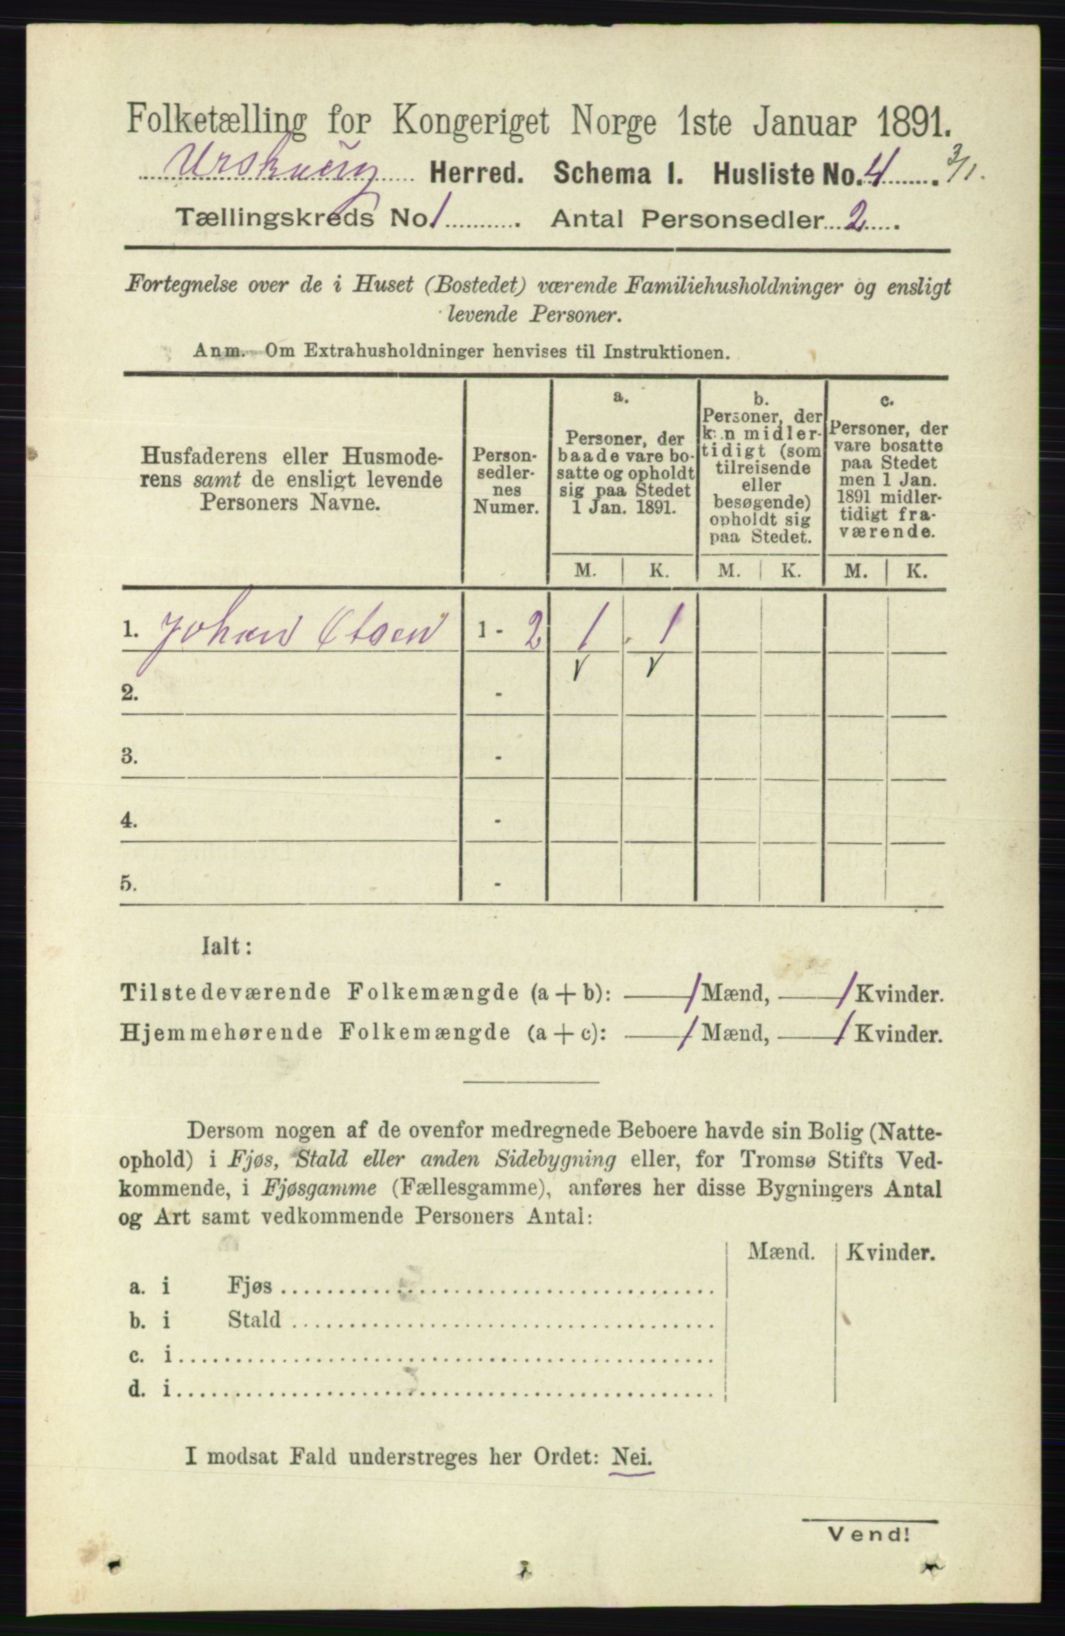 Folketælling for Kongeriget Norge 1ste Januar 1891.
Urskoug Herred. Schema I. Husliste No. 4. 3/1.
Tællingskreds No. 1. Antal Personsedler 2.
Fortegnelse over de i Huset (Bostedet) værende Familiehusholdninger og ensligt
levende Personer.
Anm. Om Extrahusholdninger henvises til Instruktionen.
Husfaderens eller Husmode-
rens samt de ensligt levende
Personers Navne.
Person-
sedler-
nes
Numer.
a.
Personer, der
baade vare bo-
satte og opholdt
sig paa Stedet
1 Jan. 1891.
b.
Personer, der
kun midler-
tidigt (som
tilreisende
eller
besøgende)
opholdt sig
paa Stedet.
c.
Personer, der
vare bosatte
paa Stedet
men 1 Jan.
1891 midler-
tidigt fra-
værende.
M. K. M. K. M. K.
1. Johan Olsen 1 - 2 1 1
2. -
3. -
4. -
5. -
Ialt:
Tilstedeværende Folkemængde (a + b): 1 Mænd, 1 Kvinder.
Hjemmehørende Folkemængde (a + c): 1 Mænd, 1 Kvinder.
Dersom nogen af de ovenfor medregnede Beboere havde sin Bolig (Natte-
ophold) i Fjøs, Stald eller anden Sidebygning eller, for Tromsø Stifts Ved-
kommende, i Fjøsgamme (Fællesgamme), anføres her disse Bygningers Antal
og Art samt vedkommende Personers Antal:
Mænd. Kvinder.
a. i Fjøs
b. i Stald
c. i
d. i
I modsat Fald understreges her Ordet: Nei.
Vend!